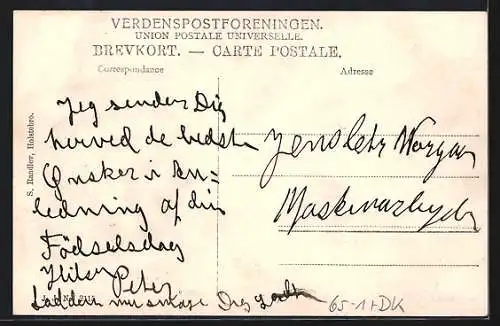 VERDENSPOSTFORENINGEN.
UNION POSTALE UNIVERSELLE.
BREVKORT. — CARTE POSTALE.
Correspondance
Adresse
Jeg sender Dig
herved de bedste
Ønsker i An=
ledning af din
Födselsdag
Hilsen Peter
Lad den nu smage Dig godt
S. Randler, Holstebro.
65-1+DK